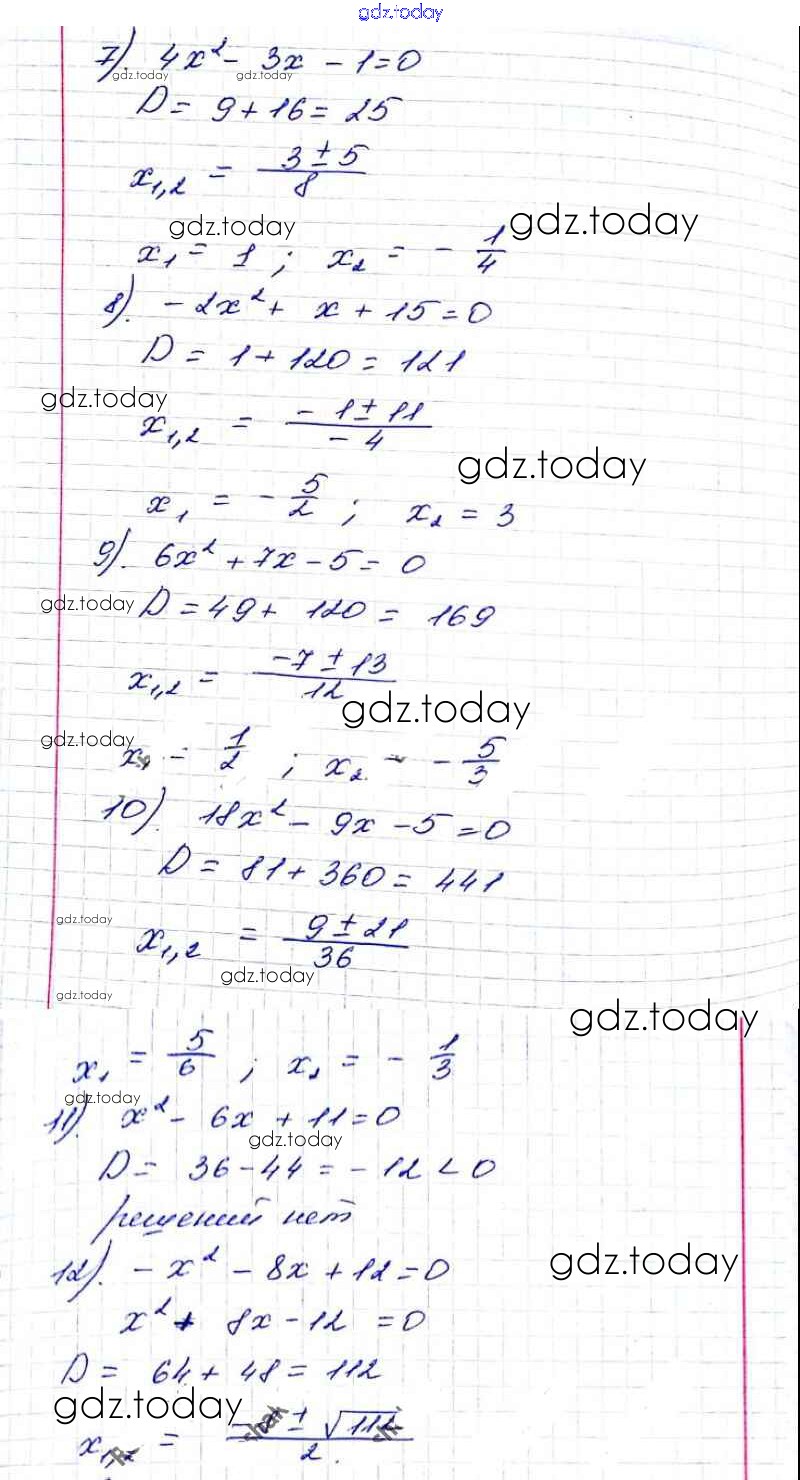 gdz.today
7). 4x² - 3x - 1 = 0
gdz.today gdz.today
D = 9 + 16 = 25
x₁,₂ = (3 ± 5)/8
gdz.today gdz.today
x₁ = 1 ; x₂ = - 1/4
8). - 2x² + x + 15 = 0
D = 1 + 120 = 121
gdz.today
x₁,₂ = (- 1 ± 11)/(- 4)
gdz.today
x₁ = - 5/2 ; x₂ = 3
9). 6x² + 7x - 5 = 0
gdz.today D = 49 + 120 = 169
x₁,₂ = (-7 ± 13)/12
gdz.today
gdz.today
x₁ = 1/2 ; x₂ = - 5/3
10). 18x² - 9x - 5 = 0
D = 81 + 360 = 441
gdz.today
x₁,₂ = (9 ± 21)/36
gdz.today
gdz.today
gdz.today
x₁ = 5/6 ; x₂ = - 1/3
gdz.today
11). x² - 6x + 11 = 0
gdz.today
D = 36 - 44 = - 12 < 0
решений нет
12). - x² - 8x + 12 = 0
gdz.today
x² + 8x - 12 = 0
D = 64 + 48 = 112
gdz.today
x₁,₂ = ± √112 / 2.